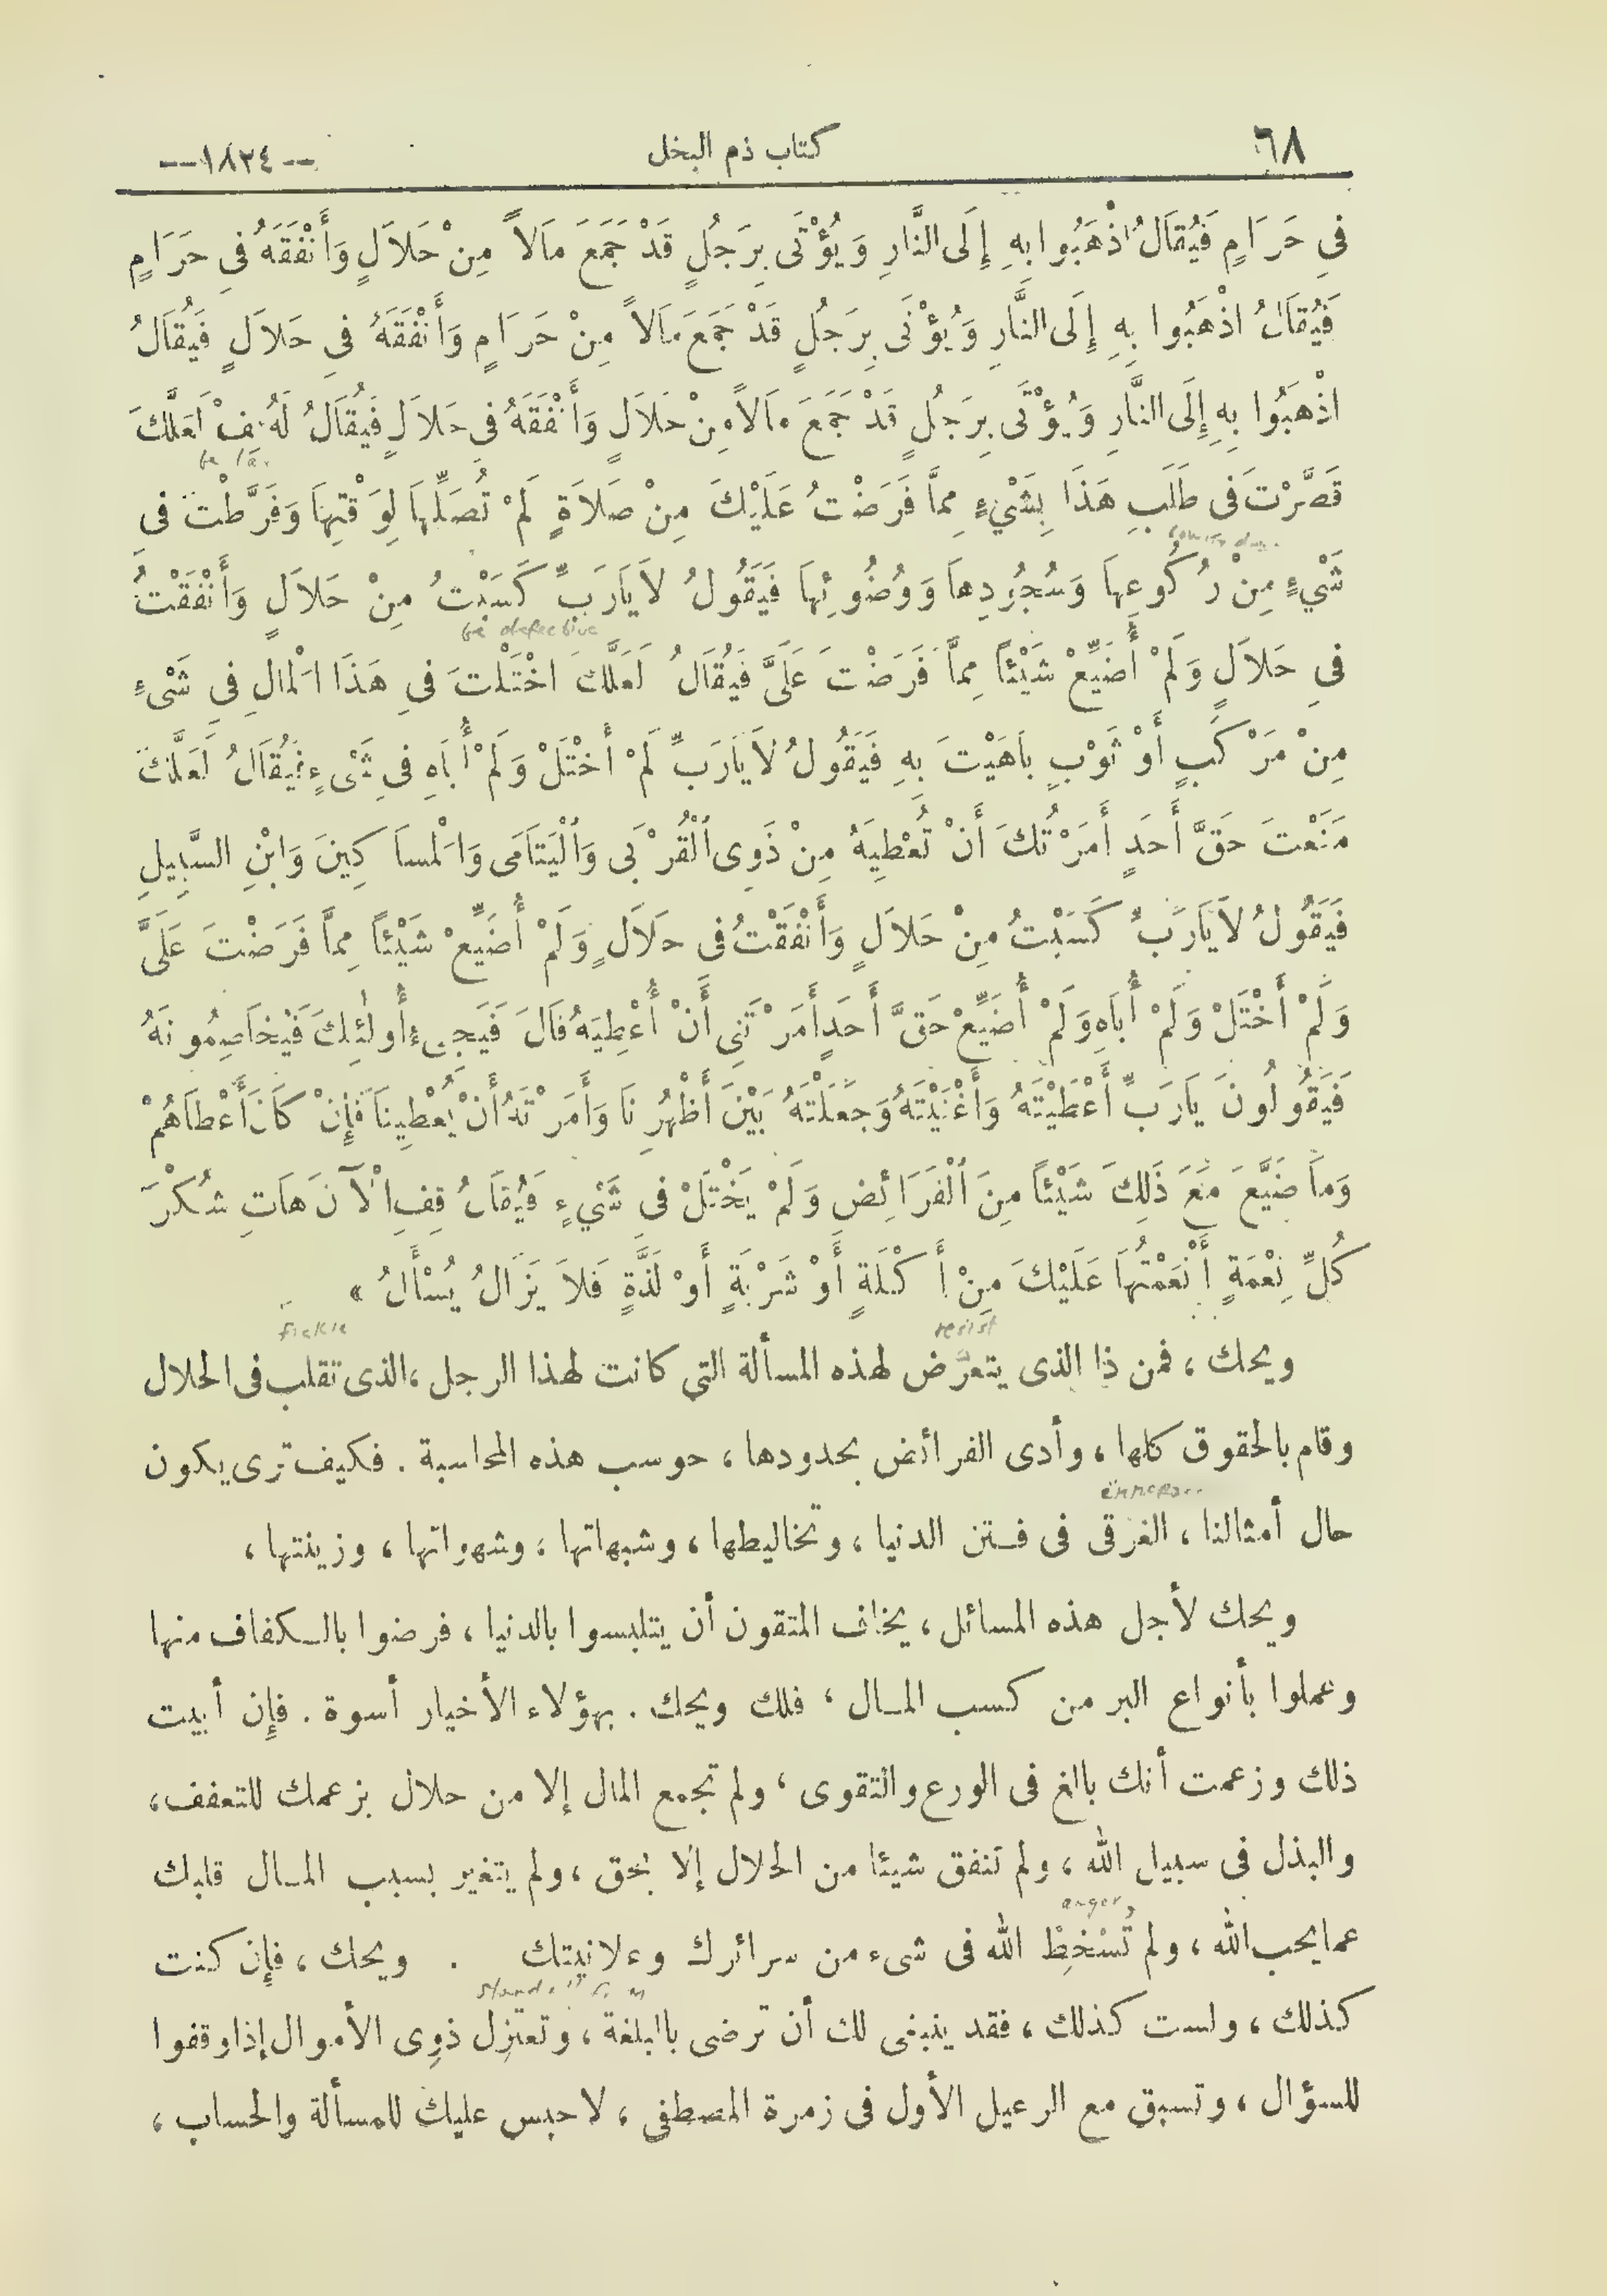 ٦٨ كتاب ذم البخل --١٨٢٤--
فِي حَرَامٍ فَيُقَالُ اذْهَبُوا بِهِ إِلَى النَّارِ وَيُؤْتَى بِرَجُلٍ قَدْ جَمَعَ مَالاً مِنْ حَلاَلٍ وَأَنْفَقَهُ فِي حَرَامٍ
فَيُقَالُ اذْهَبُوا بِهِ إِلَى النَّارِ وَيُؤْتَى بِرَجُلٍ قَدْ جَمَعَ مَالاً مِنْ حَرَامٍ وَأَنْفَقَهُ فِي حَلاَلٍ فَيُقَالُ
اذْهَبُوا بِهِ إِلَى النَّارِ وَيُؤْتَى بِرَجُلٍ قَدْ جَمَعَ مَالاً مِنْ حَلاَلٍ وَأَنْفَقَهُ فِي حَلاَلٍ فَيُقَالُ لَهُ قِفْ لَعَلَّكَ
قَصَّرْتَ فِى طَلَبِ هَذَا بِشَيْءٍ مِمَّا فَرَضْتُ عَلَيْكَ مِنْ صَلاَةٍ لَمْ تُصَلِّهَا لِوَقْتِهَا وَفَرَّطْتَ فِى
شَيْءٍ مِنْ رُكُوعِهَا وَسُجُودِهَا وَوُضُوئِهَا فَيَقُولُ لاَ يَارَبِّ كَسَبْتُ مِنْ حَلاَلٍ وَأَنْفَقْتُ
be defective
فِي حَلاَلٍ وَلَمْ أُضَيِّعْ شَيْئاً مِمَّا فَرَضْتَ عَلَيَّ فَيُقَالُ لَعَلَّكَ اخْتَلْتَ فِي هَذَا الْمَالِ فِي شَىْءٍ
مِنْ مَرْكَبٍ أَوْ ثَوْبٍ بَاهَيْتَ بِهِ فَيَقُولُ لاَ يَارَبِّ لَمْ أَخْتَلْ وَلَمْ أُبَاهِ فِي شَىْءٍ فَيُقَالُ لَعَلَّكَ
مَنَعْتَ حَقَّ أَحَدٍ أَمَرْتُكَ أَنْ تُعْطِيَهُ مِنْ ذَوِى الْقُرْبَى وَالْيَتَامَى وَالْمَسَاكِينَ وَابْنِ السَّبِيلِ
فَيَقُولُ لاَ يَارَبِّ كَسَبْتُ مِنْ حَلاَلٍ وَأَنْفَقْتُ فِى حَلاَلٍ وَلَمْ أُضَيِّعْ شَيْئاً مِمَّا فَرَضْتَ عَلَيَّ
وَلَمْ أَخْتَلْ وَلَمْ أُبَاهِ وَلَمْ أُضَيِّعْ حَقَّ أَحَدٍ أَمَرْتَنِى أَنْ أُعْطِيَهُ قَالَ فَيَجِىءُ أُولٰئِكَ فَيُخَاصِمُونَهُ
فَيَقُولُونَ يَارَبِّ أَعْطَيْتَهُ وَأَغْنَيْتَهُ وَجَعَلْتَهُ بَيْنَ أَظْهُرِنَا وَأَمَرْتَهُ أَنْ يُعْطِينَا فَإِنْ كَانَ أَعْطَاهُمْ
وَمَا ضَيَّعَ مَعَ ذَلِكَ شَيْئاً مِنَ الْفَرَائِضِ وَلَمْ يَخْتَلْ فِى شَيْءٍ فَيُقَالُ قِفِ الْآنَ هَاتِ شُكْرَ
كُلِّ نِعْمَةٍ أَنْعَمْتُهَا عَلَيْكَ مِنْ أَكْلَةٍ أَوْ شَرْبَةٍ أَوْ لَذَّةٍ فَلاَ يَزَالُ يُسْأَلُ »
resist fickle
ويحك ، فمن ذا الذى يتعرّض لهذه المسألة التى كانت لهذا الرجل ،الذى تقلب فى الحلال
وقام بالحقوق كلها ، وأدى الفرائض بحدودها ، حوسب هذه المحاسبة . فكيف ترى يكون
حال أمثالنا ، الغرقى فى فـتن الدنيا ، وتخاليطها ، وشبهاتها ، وشهواتها ، وزينتها ،
ويحك لأجل هذه المسائل ، يخاف المتقون أن يتلبسوا بالدنيا ، فرضوا بالـكفاف منها
وعملوا بأنواع البر من كسب المـال ، فلك ويحك . بهؤلاء الأخيار أسوة . فإن أبيت
ذلك وزعمت أنك بالغ فى الورع والتقوى ، ولم تجمع المال إلا من حلال بزعمك للتعفف،
والبذل فى سبيل الله ، ولم تنفق شيئا من الحلال إلا بحق ، ولم يتغير بسبب المـال قلبك
anger
عما يحب الله ، ولم تُسْخِطْ الله فى شىء من سرائرك وعلانيتك . ويحك ، فإن كنت
كذلك ، ولست كذلك ، فقد ينبغى لك أن ترضى بالبلغة ، وتعتزِل ذوِى الأموال إذا وقفوا
للسؤال ، وتسبق مع الرعيل الأول فى زمرة المصطفى ، لا حبس عليك للمسألة والحساب ،